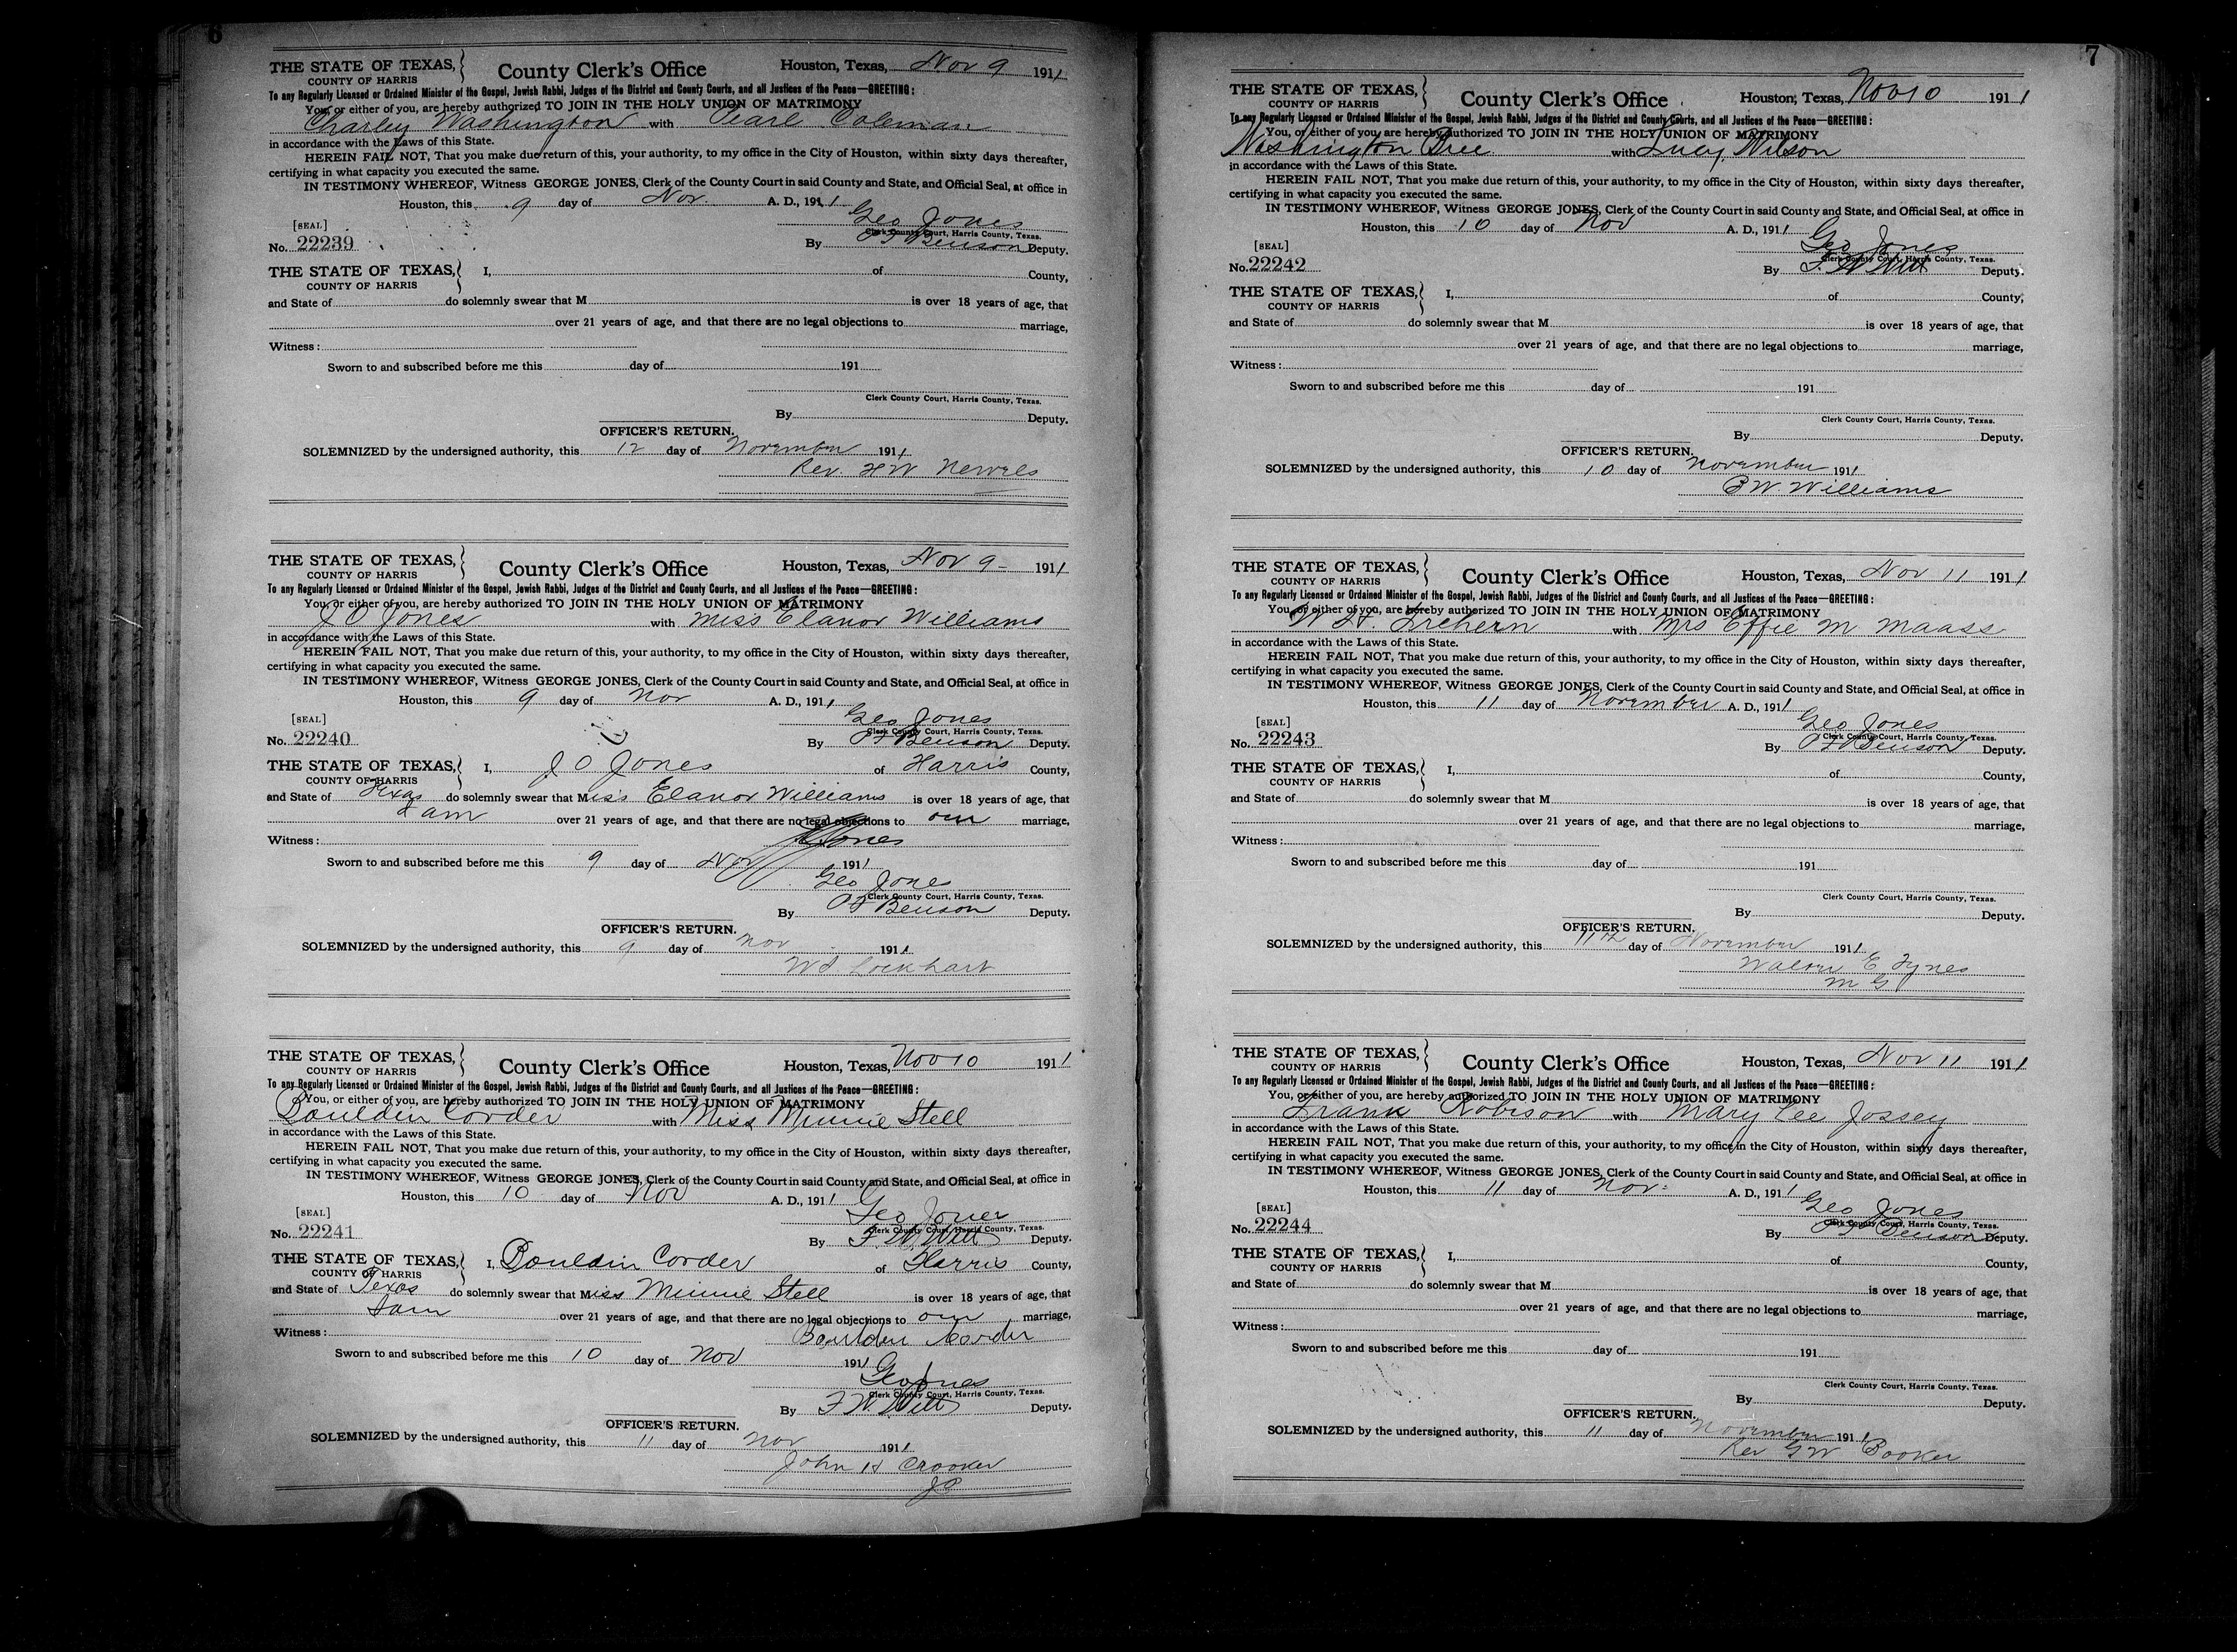 6
THE STATE OF TEXAS, County Clerk's Office Houston, Texas, Nov 9 1911
COUNTY OF HARRIS
To any Regularly Licensed or Ordained Minister of the Gospel, Jewish Rabbi, Judges of the District and County Courts, and all Justices of the Peace—GREETING:
You, or either of you, are hereby authorized TO JOIN IN THE HOLY UNION OF MATRIMONY
Charley Washington with Pearl Coleman
in accordance with the Laws of this State.
HEREIN FAIL NOT, That you make due return of this, your authority, to my office in the City of Houston, within sixty days thereafter,
certifying in what capacity you executed the same.
IN TESTIMONY WHEREOF, Witness GEORGE JONES, Clerk of the County Court in said County and State, and Official Seal, at office in
Houston, this 9 day of Nov. A. D., 1911
Geo Jones
[SEAL] Clerk County Court, Harris County, Texas.
No. 22239 By Benson Deputy.
THE STATE OF TEXAS, I, of County,
COUNTY OF HARRIS
and State of do solemnly swear that M is over 18 years of age, that
over 21 years of age, and that there are no legal objections to marriage,
Witness:
Sworn to and subscribed before me this day of 191
Clerk County Court, Harris County, Texas.
By Deputy.
OFFICER'S RETURN.
SOLEMNIZED by the undersigned authority, this 12 day of November 1911
Rev. H W
THE STATE OF TEXAS, County Clerk's Office Houston, Texas, Nov 9 - 1911
COUNTY OF HARRIS
To any Regularly Licensed or Ordained Minister of the Gospel, Jewish Rabbi, Judges of the District and County Courts, and all Justices of the Peace—GREETING:
You, or either of you, are hereby authorized TO JOIN IN THE HOLY UNION OF MATRIMONY
J O Jones with Miss Elanor Williams
in accordance with the Laws of this State.
HEREIN FAIL NOT, That you make due return of this, your authority, to my office in the City of Houston, within sixty days thereafter,
certifying in what capacity you executed the same.
IN TESTIMONY WHEREOF, Witness GEORGE JONES, Clerk of the County Court in said County and State, and Official Seal, at office in
Houston, this 9 day of Nov A. D., 1911
Geo Jones
[SEAL] Clerk County Court, Harris County, Texas.
No. 22240 By Benson Deputy.
THE STATE OF TEXAS, I, J O Jones of Harris County,
COUNTY OF HARRIS
and State of Texas do solemnly swear that Miss Elanor Williams is over 18 years of age, that
I am over 21 years of age, and that there are no legal objections to our marriage,
Witness: Jones
Sworn to and subscribed before me this 9 day of Nov 1911
Geo Jones
Clerk County Court, Harris County, Texas.
By Benson Deputy.
OFFICER'S RETURN.
SOLEMNIZED by the undersigned authority, this 9 day of Nov 1911
Lockhart
THE STATE OF TEXAS, County Clerk's Office Houston, Texas, Nov 10 1911
COUNTY OF HARRIS
To any Regularly Licensed or Ordained Minister of the Gospel, Jewish Rabbi, Judges of the District and County Courts, and all Justices of the Peace—GREETING:
You, or either of you, are hereby authorized TO JOIN IN THE HOLY UNION OF MATRIMONY
Bouldin Corder with Miss Minnie Stell
in accordance with the Laws of this State.
HEREIN FAIL NOT, That you make due return of this, your authority, to my office in the City of Houston, within sixty days thereafter,
certifying in what capacity you executed the same.
IN TESTIMONY WHEREOF, Witness GEORGE JONES, Clerk of the County Court in said County and State, and Official Seal, at office in
Houston, this 10 day of Nov A. D., 1911
Geo Jones
[SEAL] Clerk County Court, Harris County, Texas.
No. 22241 By F. W. Deputy.
THE STATE OF TEXAS, I, Bouldin Corder of Harris County,
COUNTY OF HARRIS
and State of Texas do solemnly swear that Miss Minnie Stell is over 18 years of age, that
I am over 21 years of age, and that there are no legal objections to our marriage,
Witness: Bouldin Corder
Sworn to and subscribed before me this 10 day of Nov 1911
Geo Jones
Clerk County Court, Harris County, Texas.
By F. W. Deputy.
OFFICER'S RETURN.
SOLEMNIZED by the undersigned authority, this 11 day of Nov 1911
John H Crooker
JP
7
THE STATE OF TEXAS, County Clerk's Office Houston, Texas, Nov 10 1911
COUNTY OF HARRIS
To any Regularly Licensed or Ordained Minister of the Gospel, Jewish Rabbi, Judges of the District and County Courts, and all Justices of the Peace—GREETING:
You, or either of you, are hereby authorized TO JOIN IN THE HOLY UNION OF MATRIMONY
Washington with Lucy Wilson
in accordance with the Laws of this State.
HEREIN FAIL NOT, That you make due return of this, your authority, to my office in the City of Houston, within sixty days thereafter,
certifying in what capacity you executed the same.
IN TESTIMONY WHEREOF, Witness GEORGE JONES, Clerk of the County Court in said County and State, and Official Seal, at office in
Houston, this 10 day of Nov A. D., 1911
Geo Jones
[SEAL] Clerk County Court, Harris County, Texas.
No. 22242 By F. W. Deputy.
THE STATE OF TEXAS, I, of County,
COUNTY OF HARRIS
and State of do solemnly swear that M is over 18 years of age, that
over 21 years of age, and that there are no legal objections to marriage,
Witness:
Sworn to and subscribed before me this day of 191
Clerk County Court, Harris County, Texas.
By Deputy.
OFFICER'S RETURN.
SOLEMNIZED by the undersigned authority, this 10 day of November 1911
W. Williams
THE STATE OF TEXAS, County Clerk's Office Houston, Texas, Nov 11 1911
COUNTY OF HARRIS
To any Regularly Licensed or Ordained Minister of the Gospel, Jewish Rabbi, Judges of the District and County Courts, and all Justices of the Peace—GREETING:
You, or either of you, are hereby authorized TO JOIN IN THE HOLY UNION OF MATRIMONY
W. H. Trehern with Mrs Effie M Maass
in accordance with the Laws of this State.
HEREIN FAIL NOT, That you make due return of this, your authority, to my office in the City of Houston, within sixty days thereafter,
certifying in what capacity you executed the same.
IN TESTIMONY WHEREOF, Witness GEORGE JONES, Clerk of the County Court in said County and State, and Official Seal, at office in
Houston, this 11 day of November A. D., 1911
Geo Jones
[SEAL] Clerk County Court, Harris County, Texas.
No. 22243 By Benson Deputy.
THE STATE OF TEXAS, I, of County,
COUNTY OF HARRIS
and State of do solemnly swear that M is over 18 years of age, that
over 21 years of age, and that there are no legal objections to marriage,
Witness:
Sworn to and subscribed before me this day of 191
Clerk County Court, Harris County, Texas.
By Deputy.
OFFICER'S RETURN.
SOLEMNIZED by the undersigned authority, this 11th day of November 1911
E Tynes
M G
THE STATE OF TEXAS, County Clerk's Office Houston, Texas, Nov 11 1911
COUNTY OF HARRIS
To any Regularly Licensed or Ordained Minister of the Gospel, Jewish Rabbi, Judges of the District and County Courts, and all Justices of the Peace—GREETING:
You, or either of you, are hereby authorized TO JOIN IN THE HOLY UNION OF MATRIMONY
Frank Robison with Mary Lee Jossey
in accordance with the Laws of this State.
HEREIN FAIL NOT, That you make due return of this, your authority, to my office in the City of Houston, within sixty days thereafter,
certifying in what capacity you executed the same.
IN TESTIMONY WHEREOF, Witness GEORGE JONES, Clerk of the County Court in said County and State, and Official Seal, at office in
Houston, this 11 day of Nov. A. D., 1911
Geo Jones
[SEAL] Clerk County Court, Harris County, Texas.
No. 22244 By Benson Deputy.
THE STATE OF TEXAS, I, of County,
COUNTY OF HARRIS
and State of do solemnly swear that M is over 18 years of age, that
over 21 years of age, and that there are no legal objections to marriage,
Witness:
Sworn to and subscribed before me this day of 191
Clerk County Court, Harris County, Texas.
By Deputy.
OFFICER'S RETURN.
SOLEMNIZED by the undersigned authority, this 11 day of November 1911
Rev G W Booker